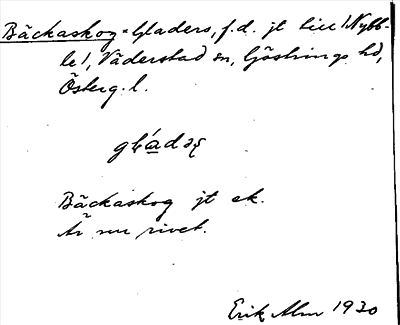 Bäckaskog = Gladers, f.d. jt till 1 Nybb-
le 1, Väderstad sn, Göstrings hd,
Österg. l.
Bäckaskog jt ek.
Är nu rivet.
Erik Alm 1930